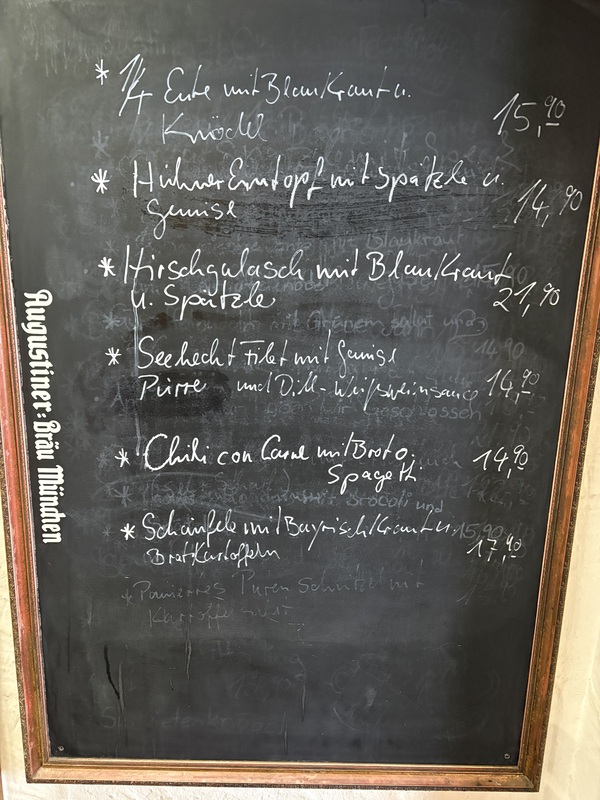 * 1/4 Ente mit Blaukraut u.
Knödel 15,90
* Hühner Eintopf mit Spätzle u.
Gemise 14,90
* Hirschgulasch mit Blaukraut
u. Spätzle 21,90
* Seehecht Filet mit Gemise
Pürre und Dill-Weißweinsauce 14,90
* Chili con Carne mit Brot o.
Spagetti 14,90
* Schäufele mit Bayrisch Kraut u.
Bratkartoffeln 17,90
* Paniertes Puten Schnitzel mit
Kartoffel
Augustiner-Bräu München